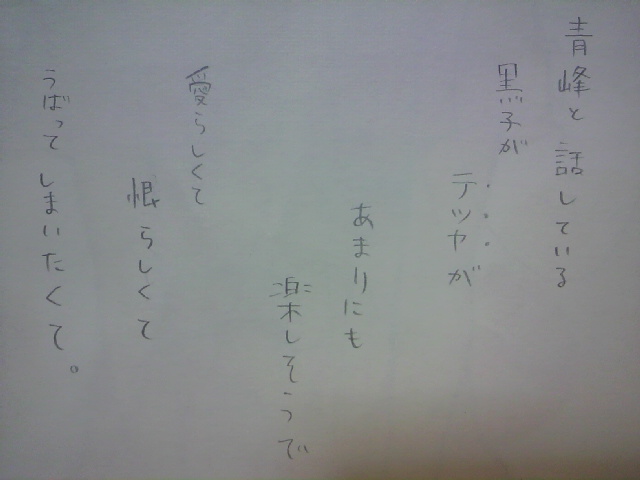 青峰と話している
黒子が
テツヤが
あまりにも
楽しそうで
愛らしくて
恨らしくて
うばってしまいたくて。